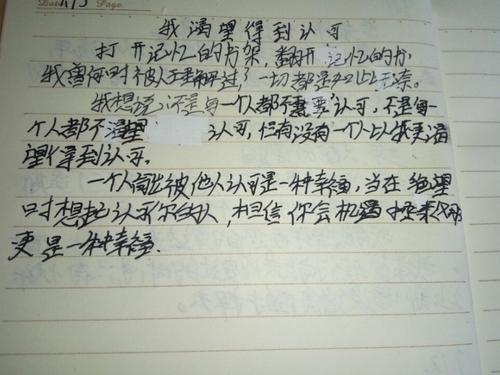 Date 1/5 Page
我渴望得到认可
打开记忆的书架,翻开 记忆的书
我曾何时被人了解过?一切都是如此无奈。
我想说,不是每一个人都不需要认可,不是每一
个人都不渴望 认可,但有没有一个人比我更渴
望得到认可。
一个人能被他人认可是一种幸福,当在绝望
时想起认可你的人,相信你会
更是一种幸福.